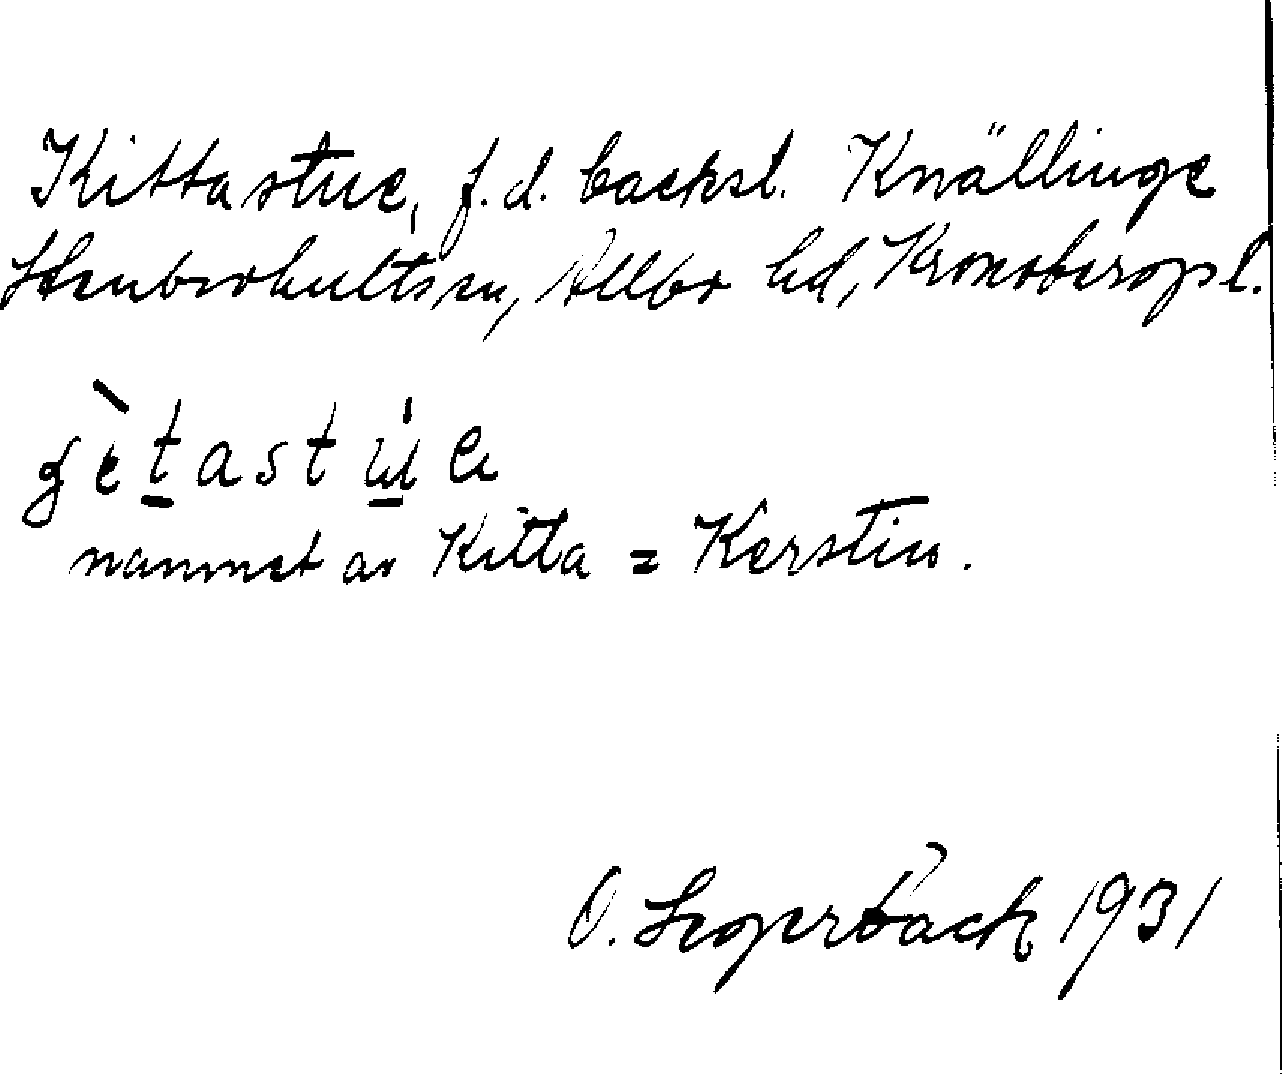 Kittastue, f.d. backst. Knällinge
Stenbrohults sn, Allbo hd, Kronobergs l.
gètastúe
namnet av Kitta = Kerstin.
O. Lägerbäck 1931